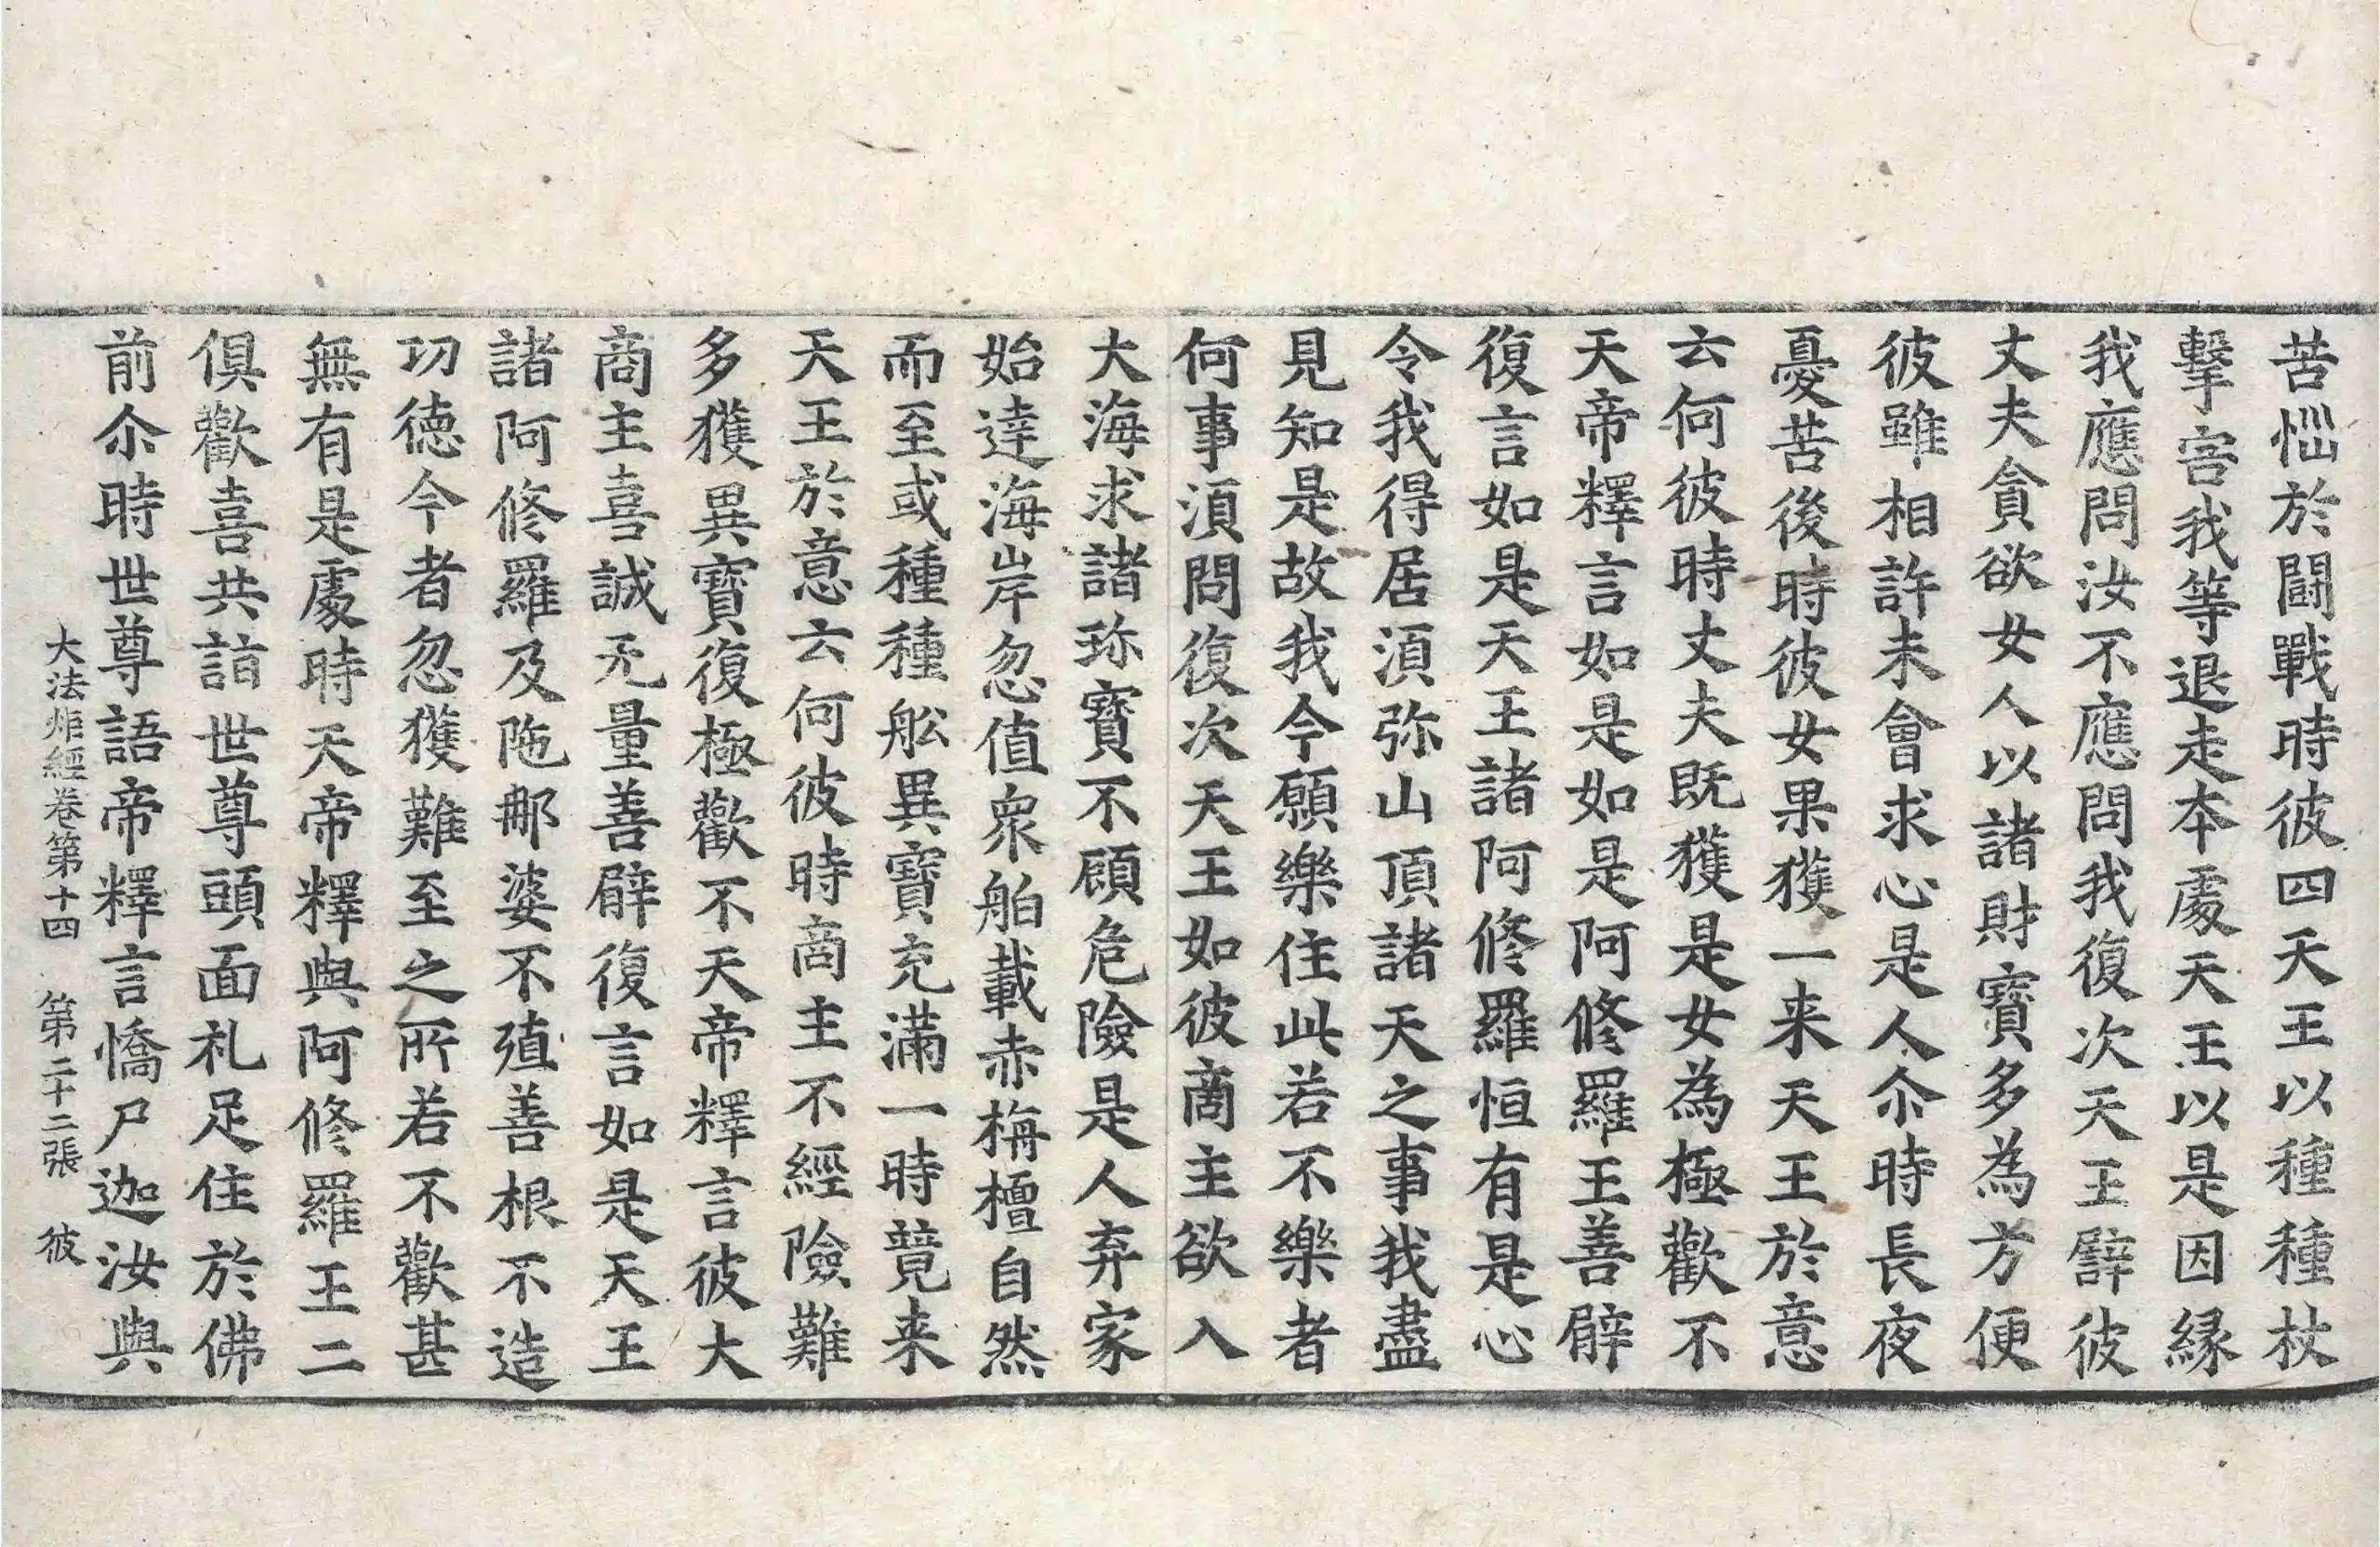 苦惱於闘戰時彼四天王以種種杖
擊害我等退走本處天王以是因緣
我應問汝不應問我復次天王譬彼
丈夫貪欲女人以諸財寶多為方便
彼雖相許未會求心是人尒時長夜
憂苦後時彼女果獲一来天王於意
云何彼時丈夫既獲是女為極歡不
天帝釋言如是如是阿修羅王善辟
復言如是天王諸阿修羅恒有是心
令我得居湏弥山頂諸天之事我盡
見知是故我今願樂住此若不樂者
何事湏問復次天王如彼商主欲入
大海求諸珎寶不顧危險是人弃家
始逹海岸忽值衆舶載赤栴檀自然
而至或種種舩異寶充滿一時竟来
天王於意云何彼時商主不經險難
多獲異寶復極歡不天帝釋言彼大
商主喜誠无量善辟復言如是天王
諸阿修羅及陁那婆不殖善根不造
功德今者忽獲難至之所若不歡甚
無有是處時天帝釋與阿修羅王二
俱歡喜共詣世尊頭面礼足住於佛
前尒時世尊語帝釋言憍尸迦汝與
大法炬經卷第十四　第二十二張　彼